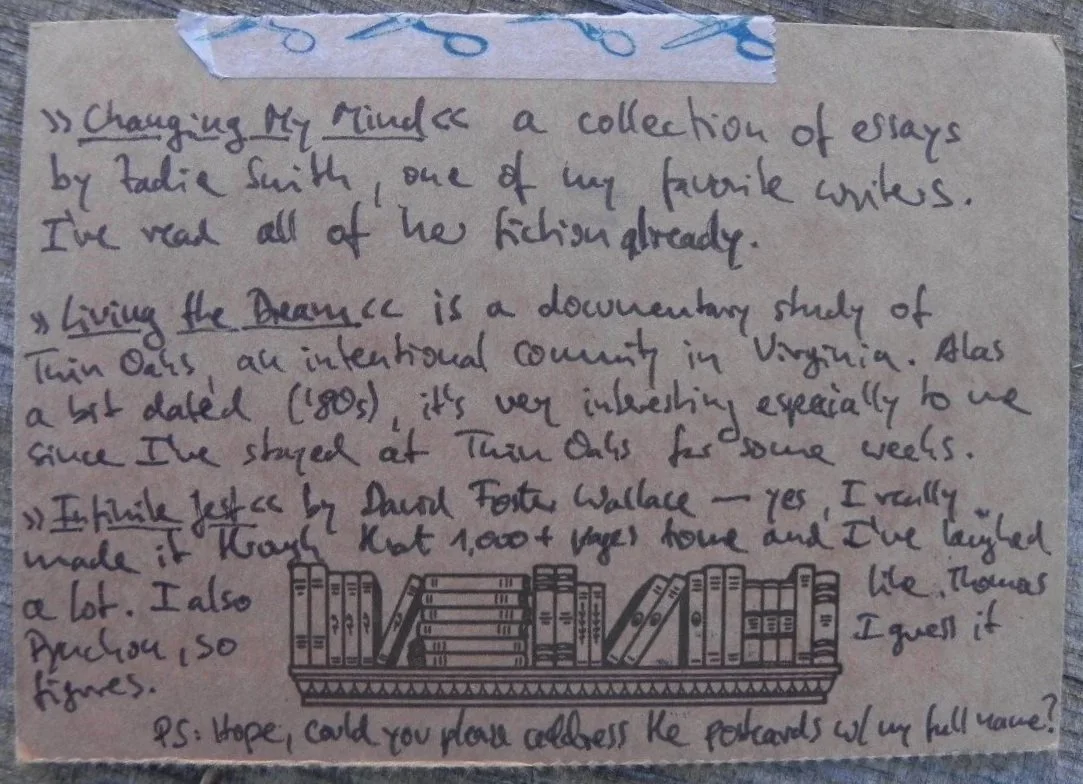 »Changing My Mind« a collection of essays
by Zadie Smith, one of my favorite writers.
I've read all of her fiction already.
»Living the Dream« is a documentary study of
Twin Oaks, an intentional community in Virginia. Alas
a bit dated ('80s), it's very interesting especially to me
since I've stayed at Twin Oaks for some weeks.
»Infinite Jest« by David Foster Wallace — yes, I really
made it through that 1,000+ pages tome and I've laughed
a lot. I also like Thomas
Pynchon, so I guess it
figures.
PS: Hope, could you please address the postcards w/ my full name?